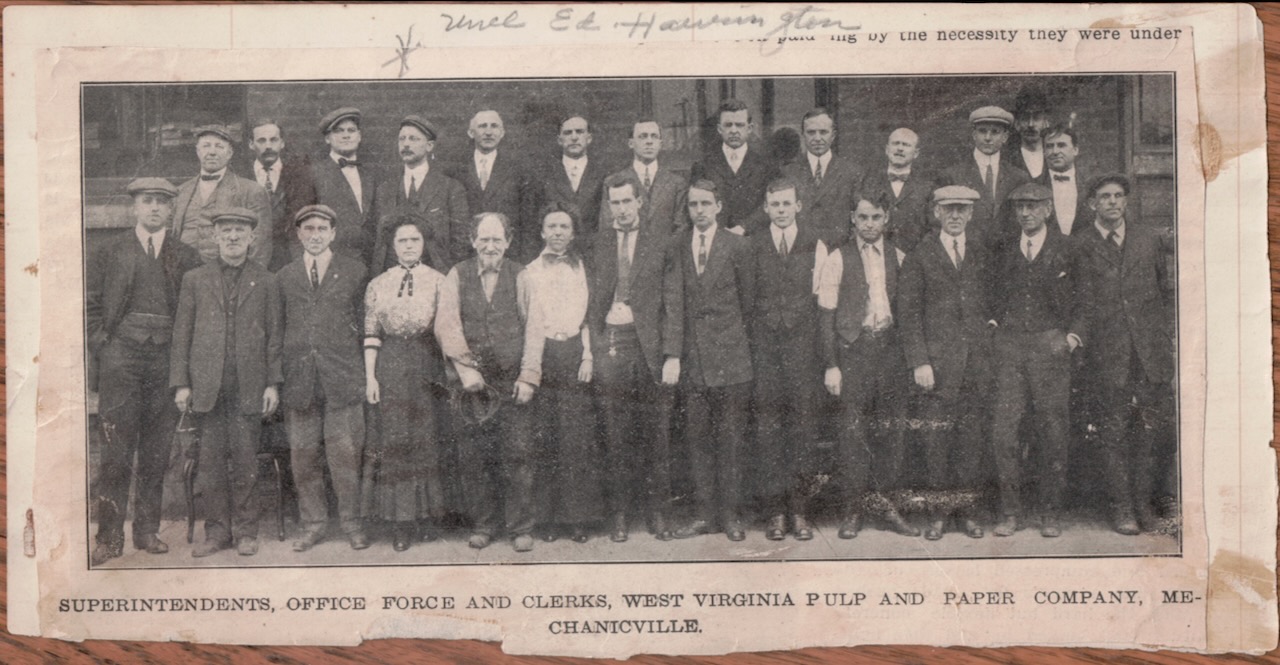 Uncl Ed Harrington
paid ing by the necessity they were under
SUPERINTENDENTS, OFFICE FORCE AND CLERKS, WEST VIRGINIA PULP AND PAPER COMPANY, ME-
CHANICVILLE.